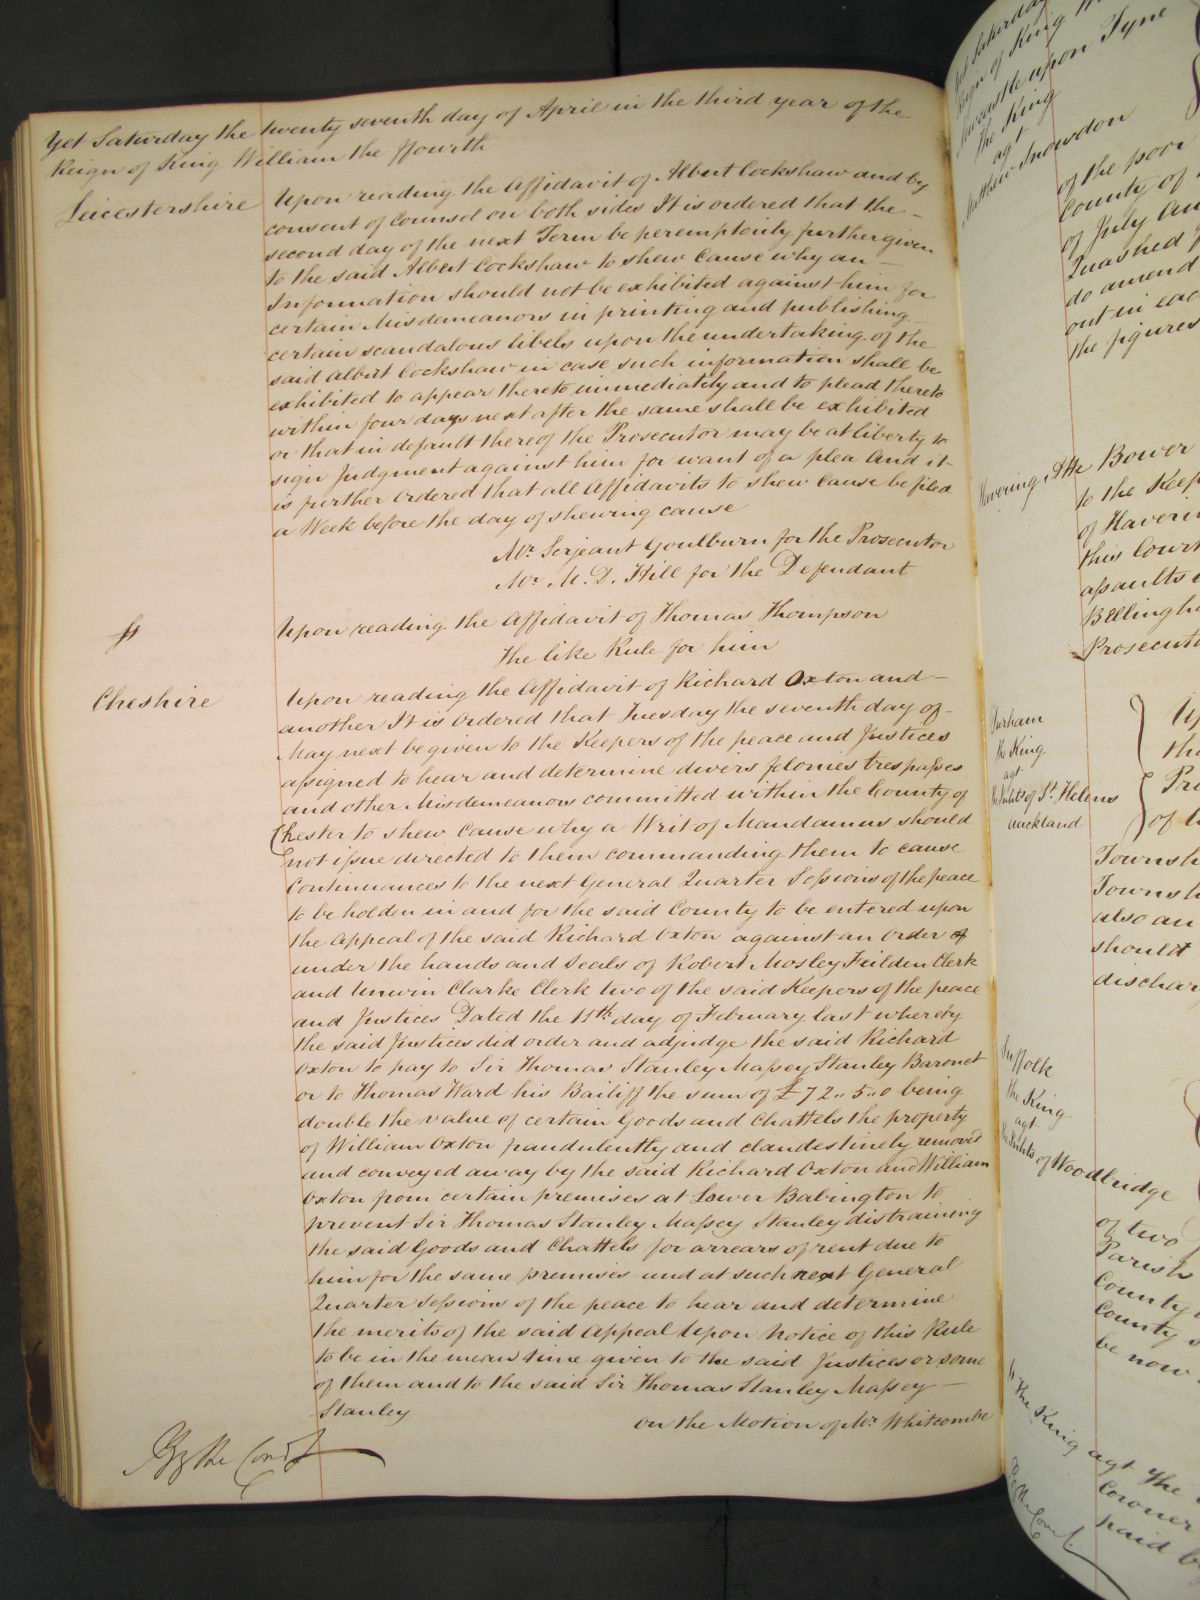 Yet Saturday the twenty seventh day of April in the third year of the
Reign of King William the ffourth
Leicestershire
Upon reading the Affidavit of Albert Cockshaw and by
consent of Counsel on both sides It is ordered that the
second day of the next Term be peremptorily further given
to the said Albert Cockshaw to shew Cause why an
Information should not be exhibited against him for
certain Misdemeanors in printing and publishing
certain scandalous libels upon the undertaking of the
said Albert Cockshaw in case such information shall be
exhibited to appear thereto immediately and to plead thereto
within four days next after the same shall be exhibited
or that in default thereof the Prosecutor may be at liberty to
sign Judgment against him for want of a plea And it
is further Ordered that all Affidavits to shew Cause be filed
a Week before the day of shewing cause
Mr. Serjeant Goulburn for the Prosecutor
Mr. M. D. Hill for the Defendant
Upon reading the Affidavit of Thomas Thompson
The like Rule for him
Cheshire
Upon reading the Affidavit of Richard Oxton and
another It is Ordered that Tuesday the seventh day of
May next be given to the Keepers of the peace and Justices
assigned to hear and determine divers felonies trespasses
and other Misdemeanors committed within the County of
Chester to shew Cause why a Writ of Mandamus should
not issue directed to them commanding them to cause
Continuances to the next General Quarter Sessions of the peace
to be holden in and for the said County to be entered upon
the Appeal of the said Richard Oxton against an Order of
under the hands and Seals of Robert Mosley Feilden Clerk
and Unwin Clarke Clerk two of the said Keepers of the peace
and Justices Dated the 11th day of February last whereby
the said Justices did order and adjudge the said Richard
Oxton to pay to Sir Thomas Stanley Massey Stanley Baronet
or to Thomas Ward his Bailiff the sum of £72..5..0 being
double the value of certain Goods and Chattels the property
of William Oxton fraudulently and clandestinely removed
and conveyed away by the said Richard Oxton and William
Oxton from certain premises at Lower Babington to
prevent Sir Thomas Stanley Massey Stanley distraining
the said Goods and Chattels for arrears of rent due to
him for the same premises and at such next General
Quarter Sessions of the peace to hear and determine
the merits of the said Appeal Upon Notice of this Rule
to be in the mean time given to the said Justices or some
of them and to the said Sir Thomas Stanley Massey
Stanley
On the Motion of Mr. Whitcombe
By the Court
Yet Saturday
Reign of King
Newcastle upon Tyne
The King
agt
Mathew Snowdon
of the poor
County of
of July
Quashed
do amend
out in eac
the figures
Havering Atte Bower
to the Keep
of Haveri
this Court
assaults
BEllingha
Prosecut
Durham
The King
agt
of St. Helens
Auckland
Up
tha
Pro
of
Townsh
Townsh
also an
should
dischar
Suffolk
the King
agt
of Woodbridge
of two
Parish
County
County
be now
The King agt The
Coroner
paid b
By the Court